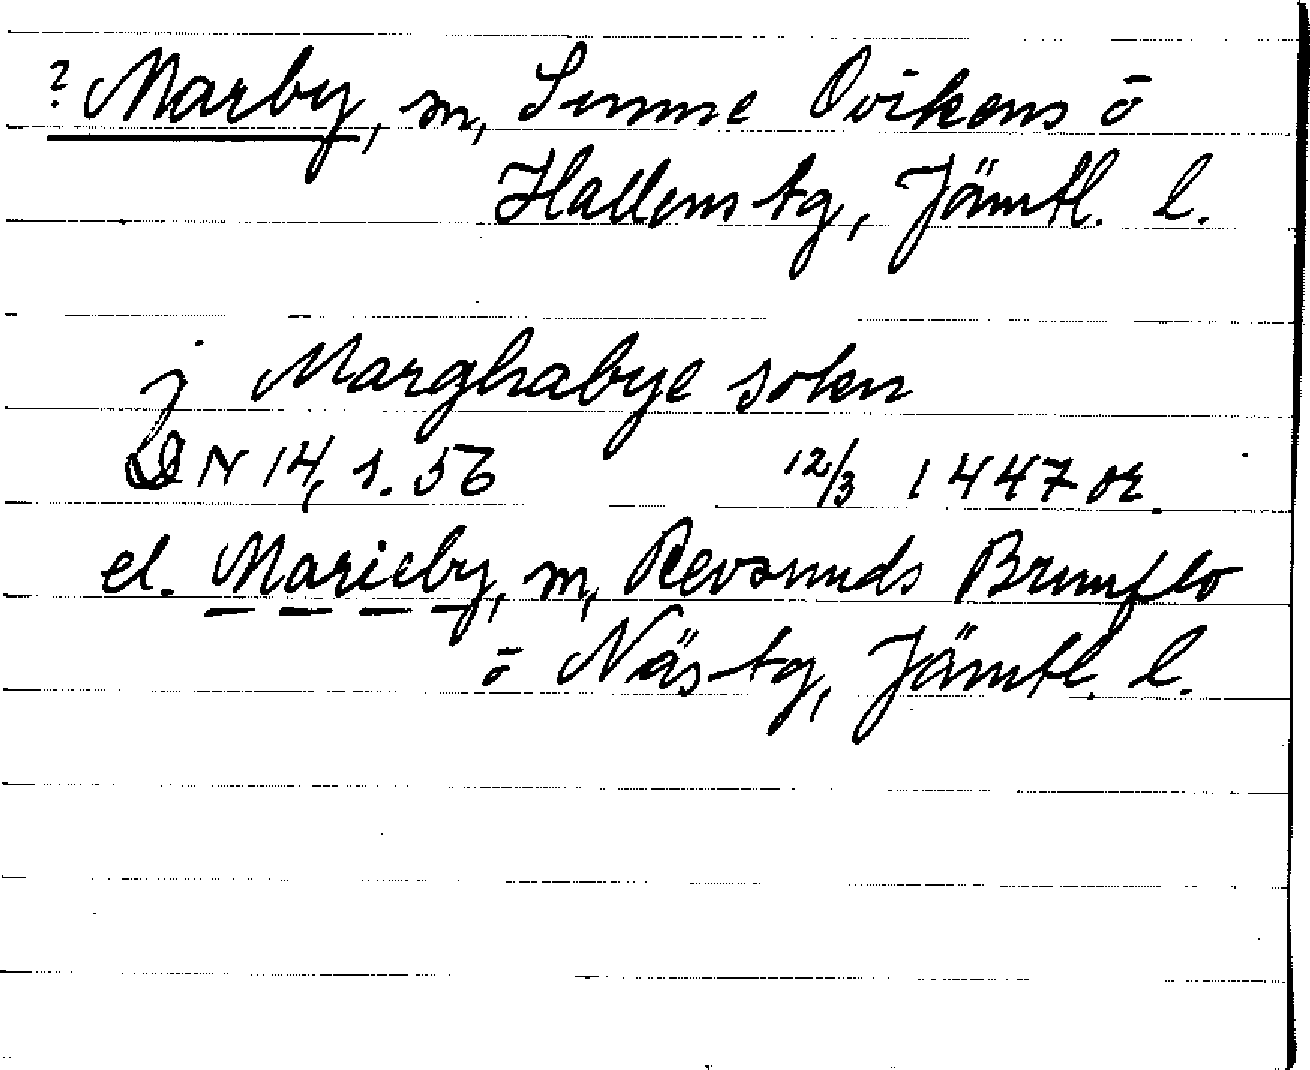 ? Marby, sn, Sunne Ovikens ō
Hallens tg, Jämtl. l.
j Marghabye sokn
DN 14, s. 56 12/3 1447 or.
el. Marieby, sn, Revsunds Brunflo
ō Näs tg, Jämtl. l.